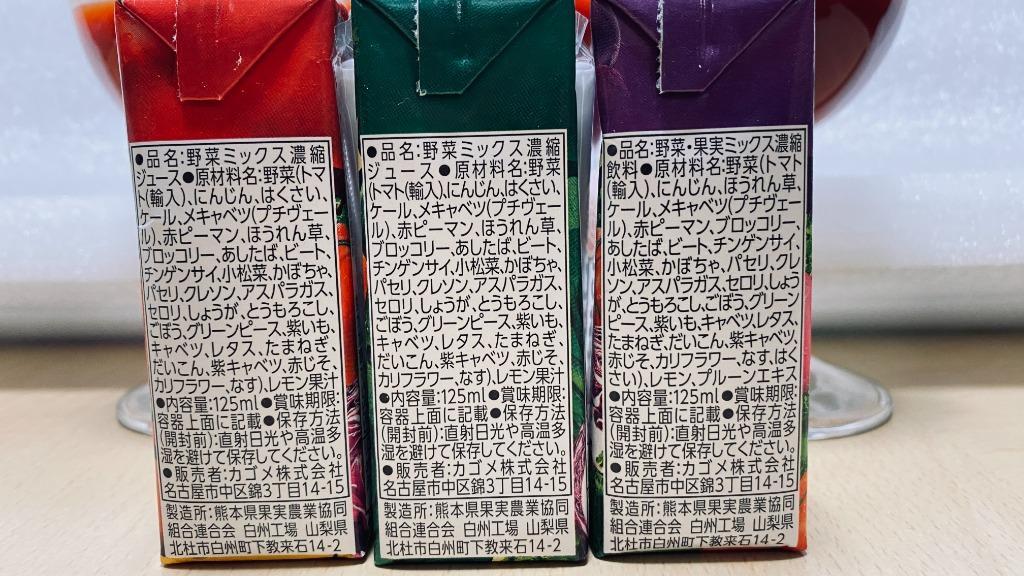 ●品名:野菜ミックス濃縮
ジュース●原材料名:野菜(トマ
ト(輸入)、にんじん、はくさい、
ケール、メキャベツ(プチヴェー
ル)、赤ピーマン、ほうれん草、
ブロッコリー、あしたば、ビート、
チンゲンサイ、小松菜、かぼちゃ、
パセリ、クレソン、アスパラガス、
セロリ、しょうが、とうもろこし、
ごぼう、グリーンピース、紫いも、
キャベツ、レタス、たまねぎ、
だいこん、紫キャベツ、赤じそ、
カリフラワー、なす)、レモン果汁
●内容量:125ml ●賞味期限:
容器上面に記載 ●保存方法
(開封前):直射日光や高温多
湿を避けて保存してください。
●販売者:カゴメ株式会社
名古屋市中区錦3丁目14-15
製造所:熊本県果実農業協同
組合連合会 白州工場 山梨県
北杜市白州町下教来石14-2
●品名:野菜ミックス濃縮
ジュース ●原材料名:野菜
(トマト(輸入)、にんじん、はくさい、
ケール、メキャベツ(プチヴェー
ル)、赤ピーマン、ほうれん草、
ブロッコリー、あしたば、ビート、
チンゲンサイ、小松菜、かぼちゃ、
パセリ、クレソン、アスパラガス、
セロリ、しょうが、とうもろこし、
ごぼう、グリーンピース、紫いも、
キャベツ、レタス、たまねぎ、
だいこん、紫キャベツ、赤じそ、
カリフラワー、なす)、レモン果汁
●内容量:125ml ●賞味期限:
容器上面に記載 ●保存方法
(開封前):直射日光や高温多
湿を避けて保存してください。
●販売者:カゴメ株式会社
名古屋市中区錦3丁目14-15
製造所:熊本県果実農業協同
組合連合会 白州工場 山梨県
北杜市白州町下教来石14-2
●品名:野菜・果実ミックス濃縮
飲料 ●原材料名:野菜(トマト
(輸入)、にんじん、ほうれん草、
ケール、メキャベツ(プチヴェー
ル)、赤ピーマン、ブロッコリー、
あしたば、ビート、チンゲンサイ、
小松菜、かぼちゃ、パセリ、クレ
ソン、アスパラガス、セロリ、しょう
が、とうもろこし、ごぼう、グリーン
ピース、紫いも、キャベツ、レタス、
たまねぎ、だいこん、紫キャベツ、
赤じそ、カリフラワー、なす、はく
さい)、レモン、プルーンエキス
●内容量:125ml ●賞味期限:
容器上面に記載 ●保存方法
(開封前):直射日光や高温多
湿を避けて保存してください。
●販売者:カゴメ株式会社
名古屋市中区錦3丁目14-15
製造所:熊本県果実農業協同
組合連合会 白州工場 山梨県
北杜市白州町下教来石14-2